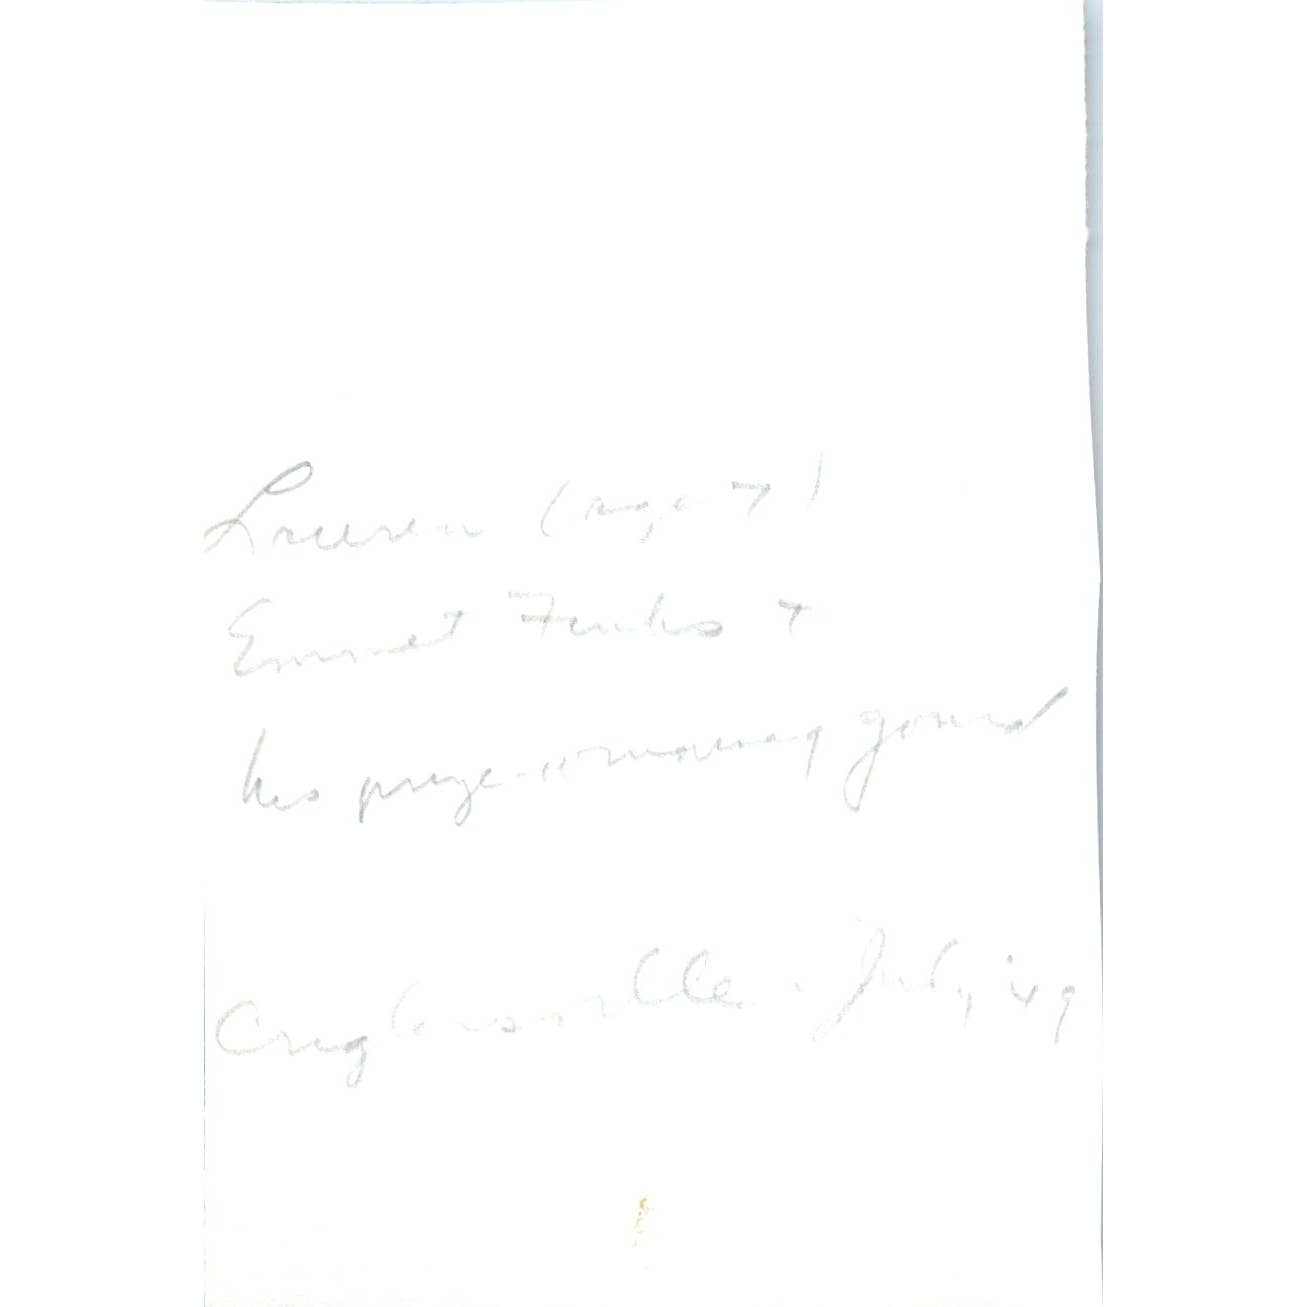 Lauren (age 7)
Emmet Funks +
his prize-winning gourd
Criglersville - July, '49